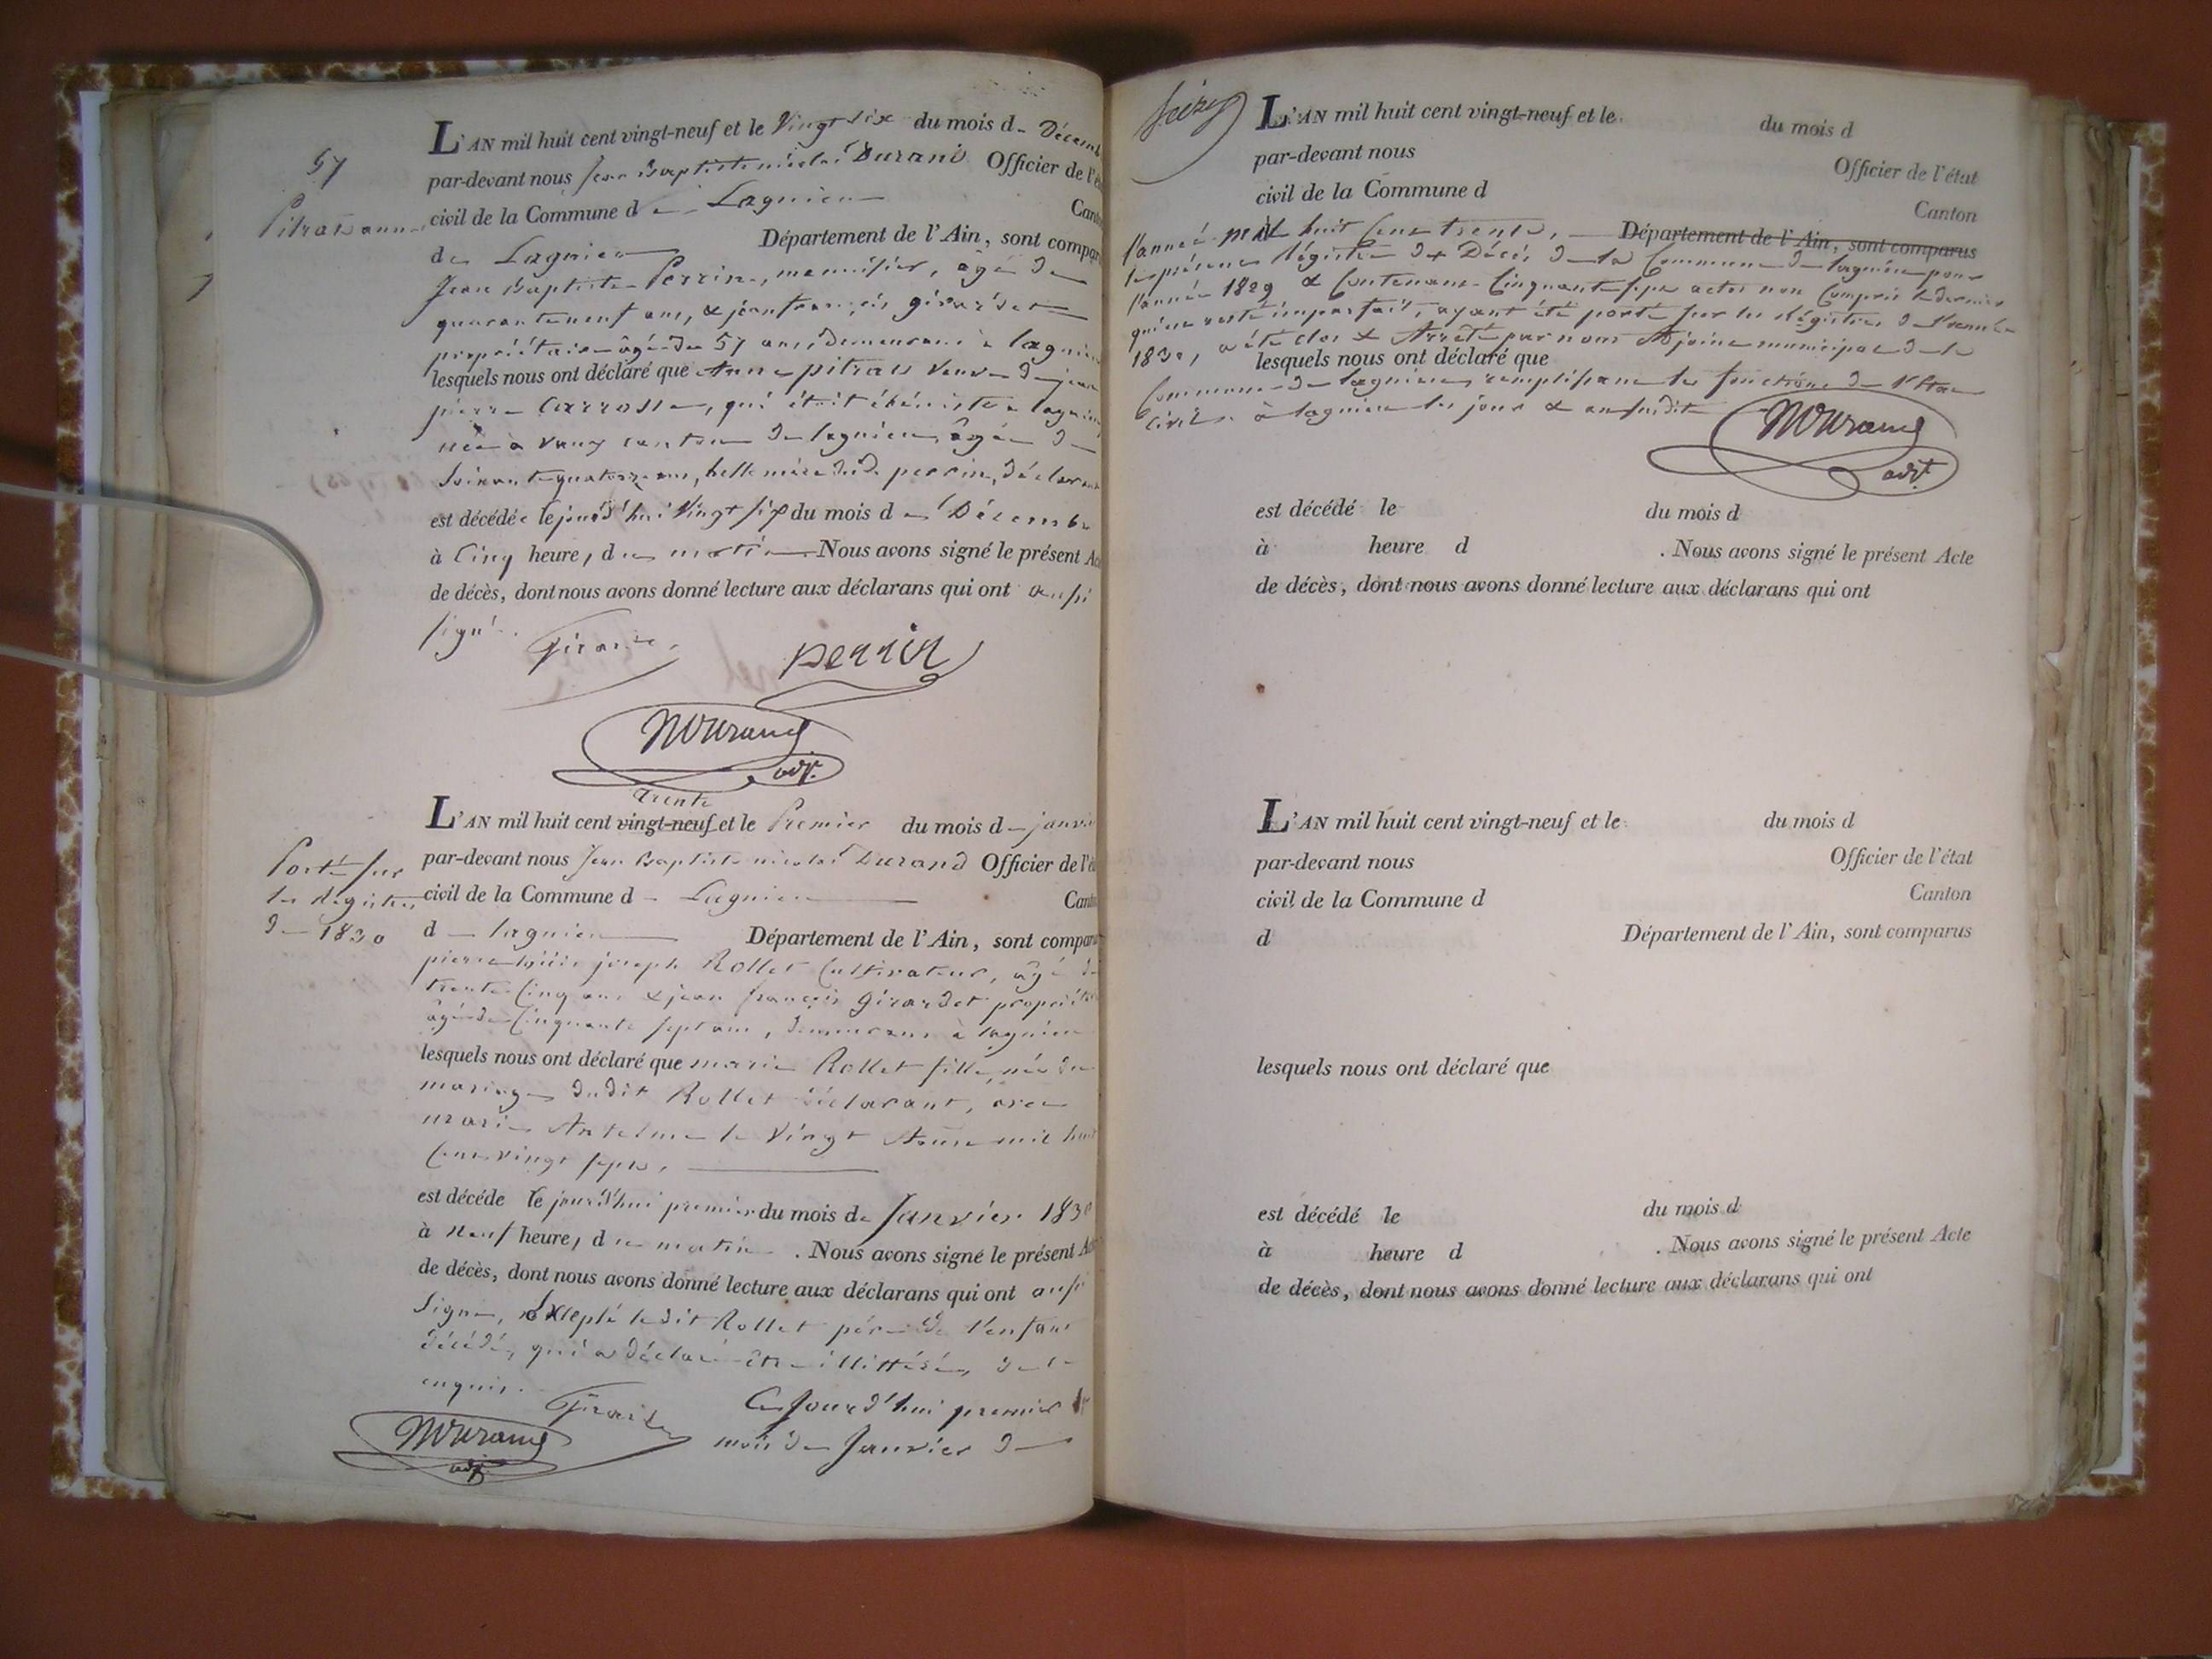 57
Pitrat anne
L'AN mil huit cent vingt-neuf et le Vingt six du mois d - Décemb
par-devant nous Jean Baptiste nicolas Durand Officier de l'é
civil de la Commune d e Lagnieu Canto
de Lagnieu Département de l'Ain, sont compar
Jean Baptiste Perrin, menuisier, âgé de
quarante neuf ans, & jean françois girardet
propriétaire âgé de 57 ans, demeurant à lagnieu
lesquels nous ont déclaré que Anne pitrat veuve de jean
pierre Carrosse, qui était ébéniste à lagnieu
née à Vaux canton de lagnieu, âgée de
soixante quatorze ans, belle mère dudt perrin, déclarant
est décédée le jourd'hui Vingt six du mois d e Décembre
à Cinq heures, du matin Nous avons signé le présent Ac
de décès, dont nous avons donné lecture aux déclarans qui ont aussi
signé.
Girardet
perrin
NDurand
adjt
trente
L'AN mil huit cent vingt-neuf et le Premier du mois d - janvi
par-devant nous Jean Baptiste nicolas Durand Officier de l'é
Porté sur
les régistres
de 1830
civil de la Commune d - Lagnieu Canto
d - lagnieu Département de l'Ain, sont compar
pierre joseph Rollet Cultivateur, âgé de
trente Cinq ans & jean françois Girardet propriét
âgé de Cinquante sept ans, demeurans à lagnieu
lesquels nous ont déclaré que marie Rollet fille, née du
mariage dudit Rollet déclarant, avec
marie Antelme le Vingt Aout mil huit
Cent vingt sept,
est décéde le jourd'hui premier du mois de Janvier 1830
à neuf heures, du matin . Nous avons signé le présent Ac
de décès, dont nous avons donné lecture aux déclarans qui ont aussi
signé, excepté ledit Rollet père de l'enfant
décédé, qui a déclaré être illittéré, de ce
enquis.
Girardet
NDurand
adjt
Ce Jourd'hui premier
mois de Janvier de
L'AN mil huit cent vingt-neuf et le du mois d
par-devant nous Officier de l'état
civil de la Commune d Canton
l'année mil huit Cent trente, Département de l'Ain, sont comparus
le présent Régistre des Décès de la Commune de lagnieu pour
l'année 1829 & Contenant Cinquante sept actes non Compris le dernier
qui est resté imparfait, ayant été porté sur les régistres de l'année
1830, a été clos & Arrêté par nous Adjoint municipal de la
lesquels nous ont déclaré que
Commune de lagnieu remplissant les fonctions de l'état
civil, à lagnieu les jour & an susdits
NDurand
adjt
est décédé le du mois d
à heure d . Nous avons signé le présent Acte
de décès, dont nous avons donné lecture aux déclarans qui ont
L'AN mil huit cent vingt-neuf et le du mois d
par-devant nous Officier de l'état
civil de la Commune d Canton
d Département de l'Ain, sont comparus
lesquels nous ont déclaré que
est décédé le du mois d
à heure d . Nous avons signé le présent Acte
de décès, dont nous avons donné lecture aux déclarans qui ont